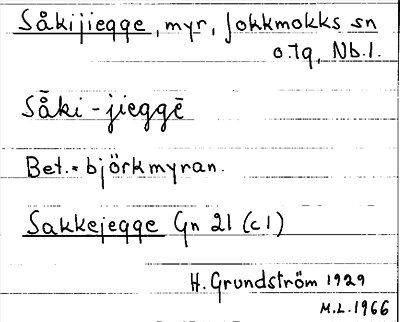 Såkijiegge, myr, Jokkmokks sn
o. tg, Nb. l.
Så̄ki - jieggē
Bet. = björkmyran.
Sakkejegge Gn 21 (c1)
H. Grundström 1929
M.L. 1966